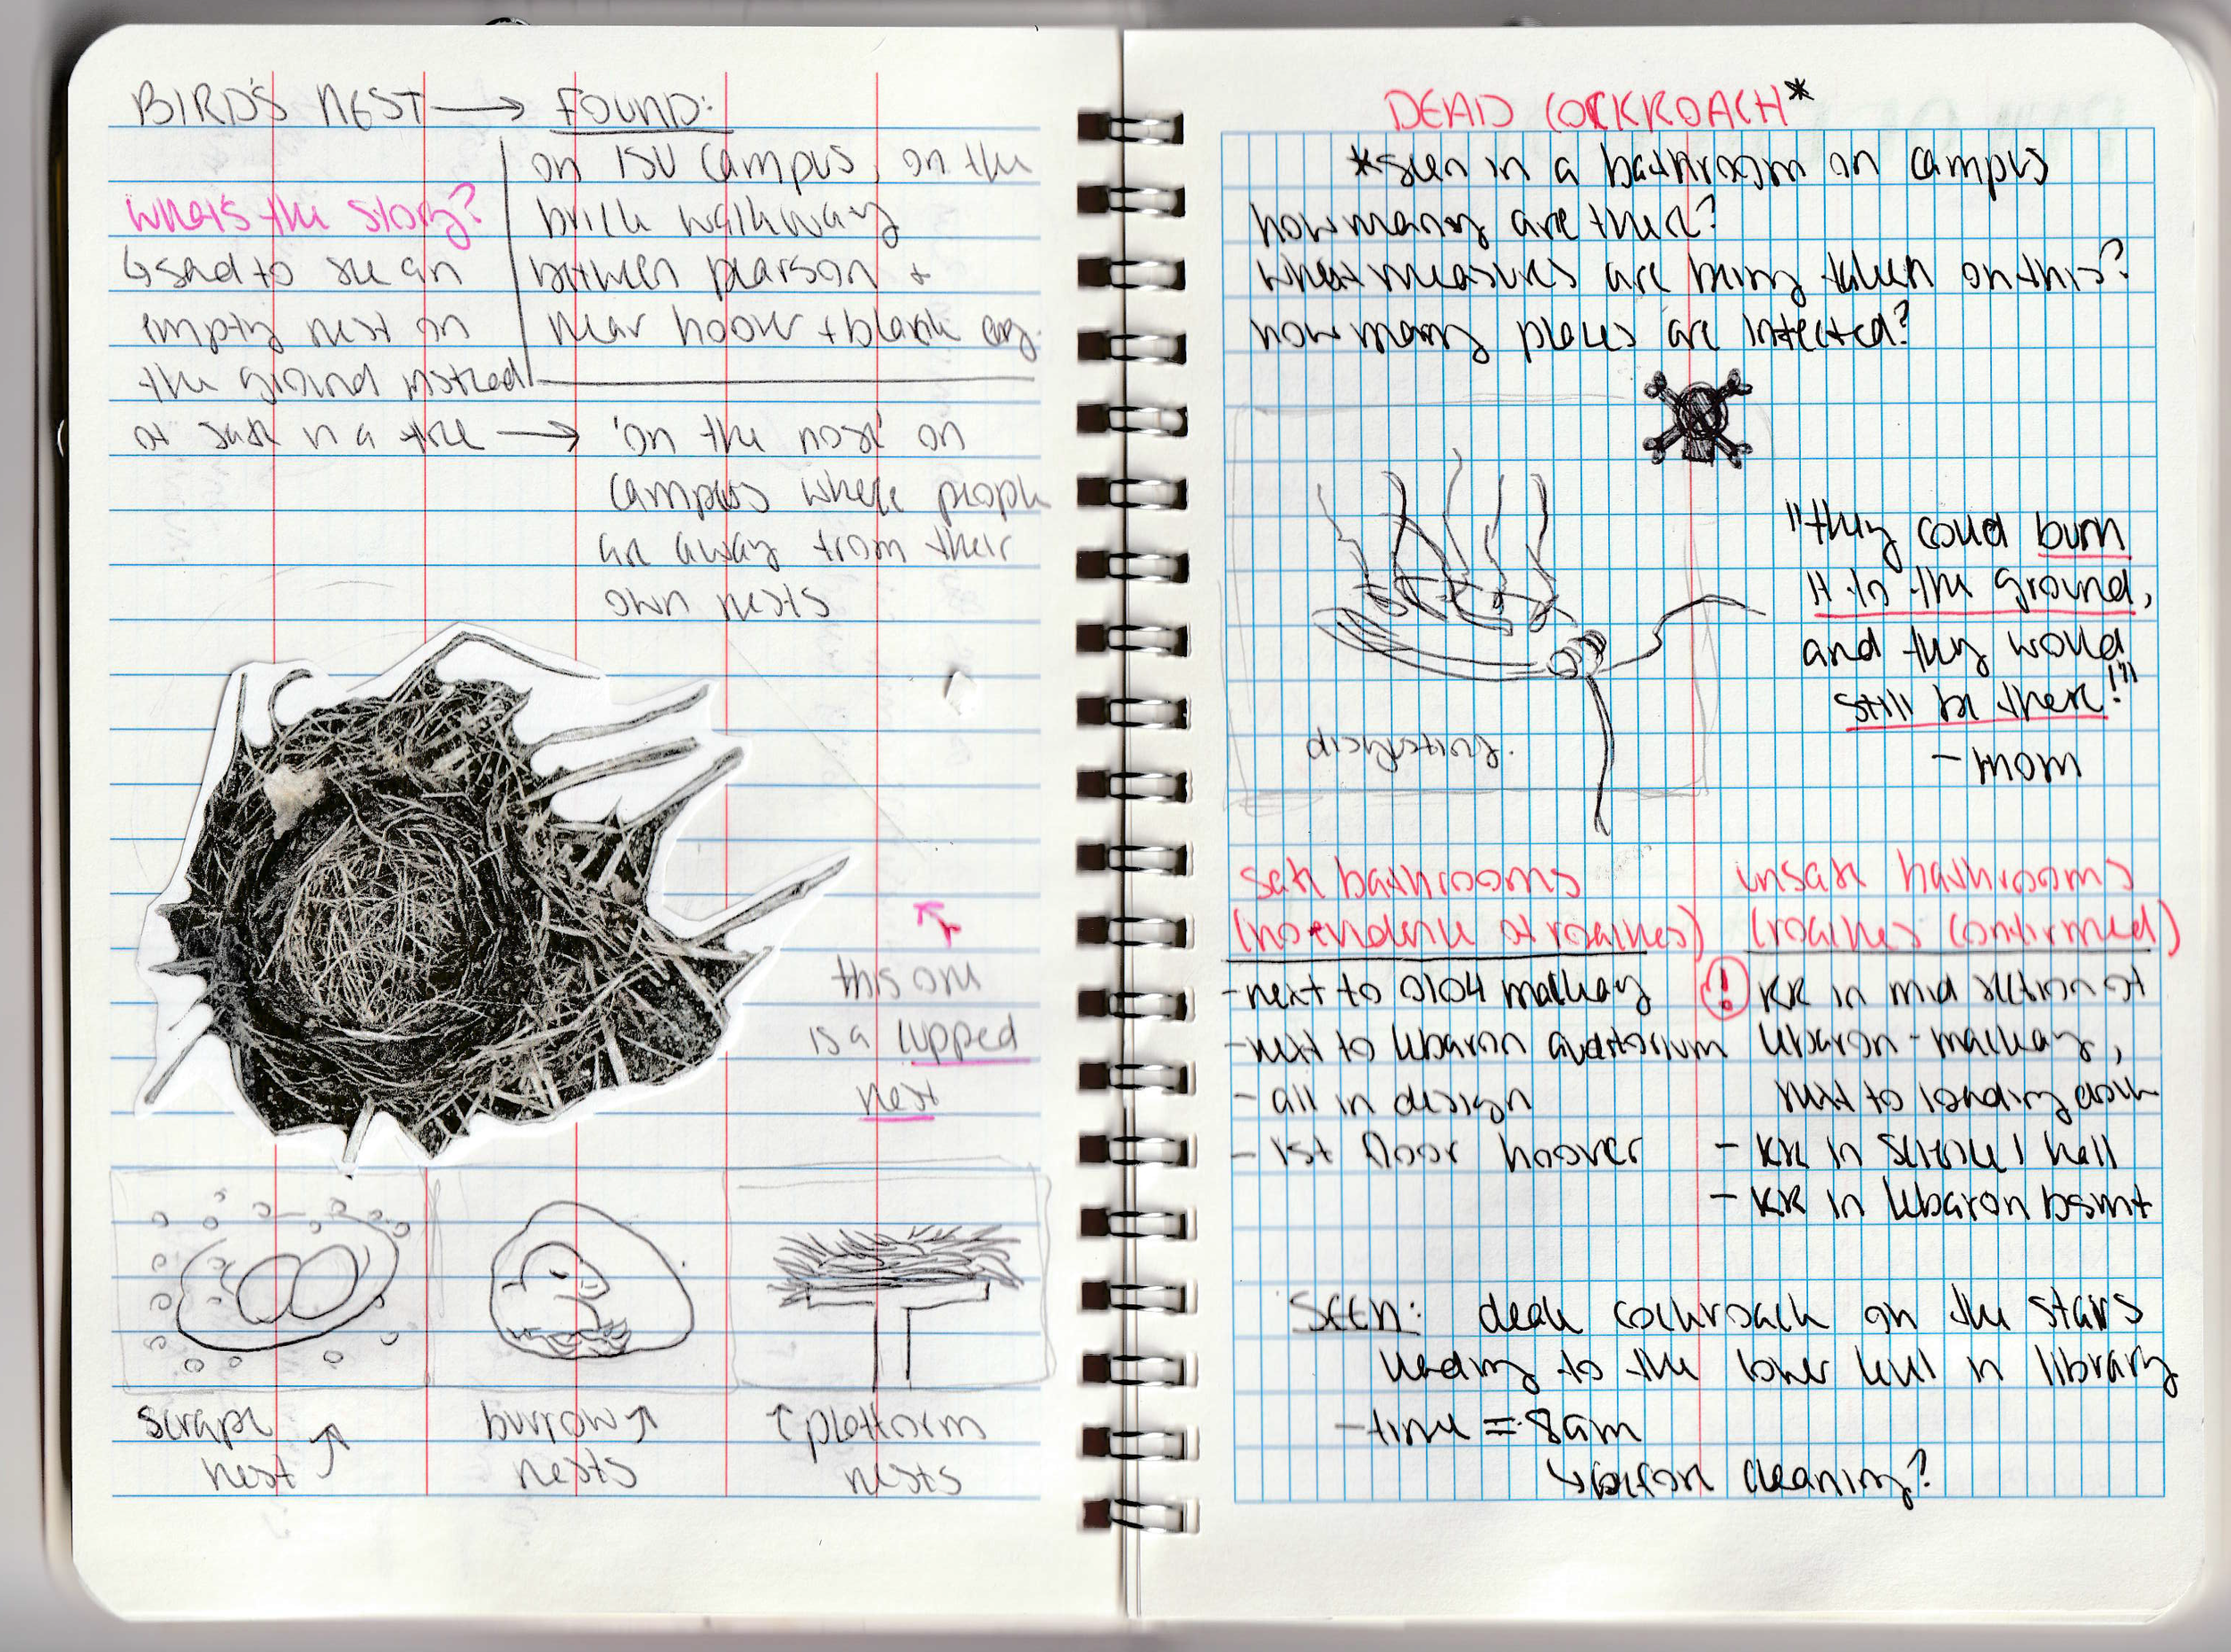 BIRD'S NEST → FOUND:
on ISU campus, on the
brick walkway
between pearson +
near hoover + blank eng.
what's the story?
↳ sad to see an
empty nest on
the ground instead
of safe in a tree → 'on the nose' on
campus where people
are away from their
own nests
this one
is a cupped
nest
scrape
nest
burrow
nests
↑ platform
nests
DEAD COCKROACH*
*seen in a bathroom on campus
how many are there?
what measures are being taken on this?
how many places are infected?
"they could burn
it to the ground,
and they would
still be there!!"
- mom
disgusting.
safe bathrooms
(no evidence of roaches)
- next to 0104 mackay
- next to lebaron auditorium
- all in design
- 1st floor hoover
unsafe bathrooms
(roaches confirmed)
! RR in mid section of
lebaron - mackay,
next to loading dock
- RR in science 1 hall
- RR in lebaron bsmt
SEEN: dead cockroach on the stairs
leading to the lower level in library
- time = 8am
↳ before cleaning?